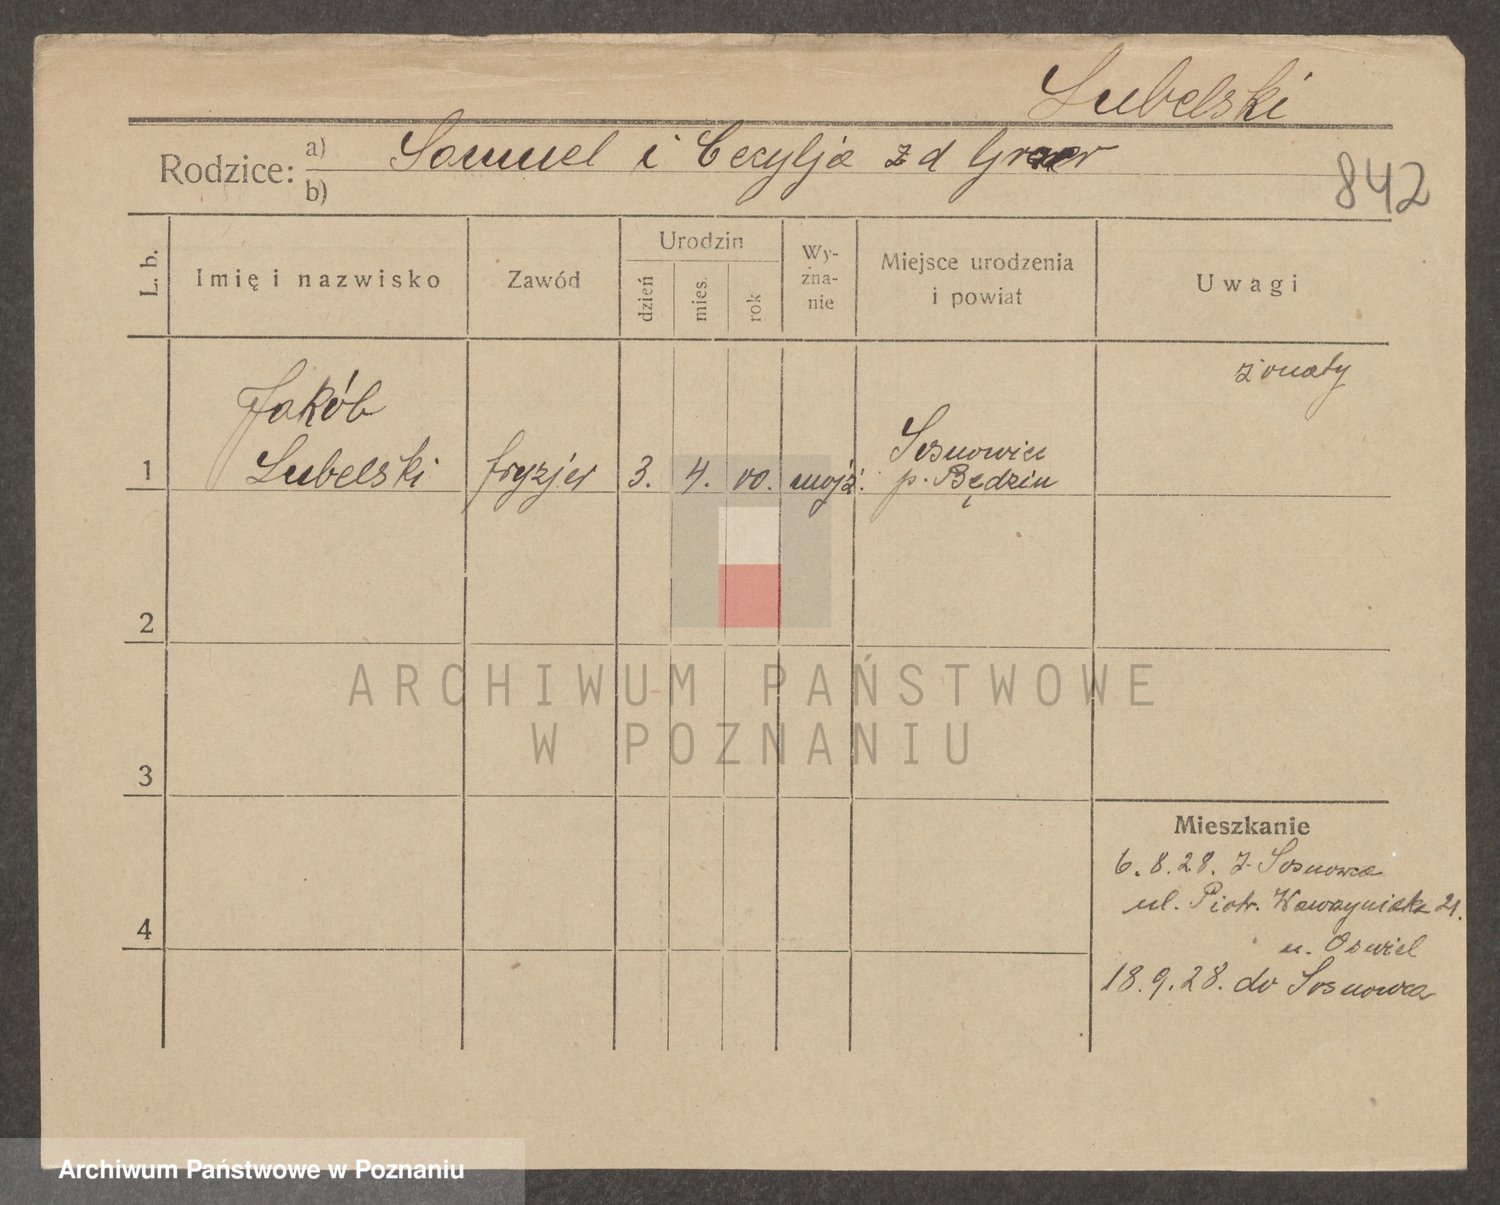 Lubelski
Rodzice: a) Samuel i Cecylja z d
b)
842
L. b.
Imię i nazwisko
Zawód
Urodzin
dzień
mies.
rok
Wy-
zna-
nie
Miejsce urodzenia
i powiat
Uwagi
żonaty
Jakób
1 Lubelski fryzjer 3. 4. 00. mojż. Sosnowice
p. Będzin
2
ARCHIWUM PAŃSTWOWE
W POZNANIU
3
Mieszkanie
6.8.28. z Sosnowca
ul. Piotr. Wawrzyniaka 21.
4
18.9.28. do Sosnowca
Archiwum Państwowe w Poznaniu